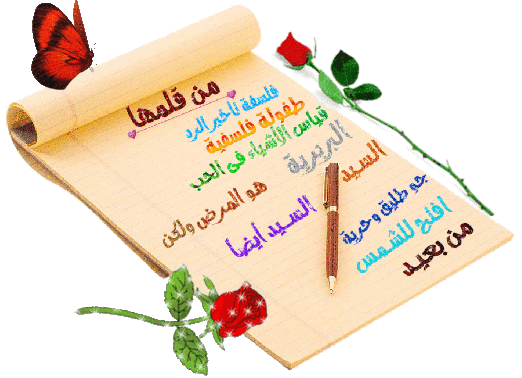 من قلمها
فلسفة تاخير الرد
طفولة فلسفية
قياس الأشياء فى الحب
البريرية
السيد
هو المرض ولكن
السيد أيضا
جو طليق وحرية
للشمس
من بعيد